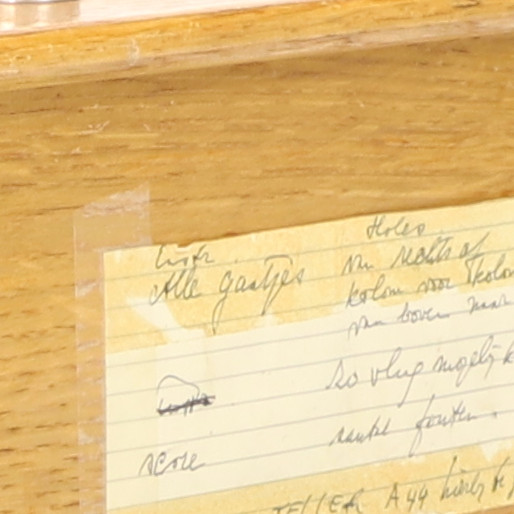 Holes
Instr.
Alle gaatjes van rechts af
kolom voor kolom
van boven naar
zo vlug mogelijk
score aantal fouten.
TELLER A44 hierbij